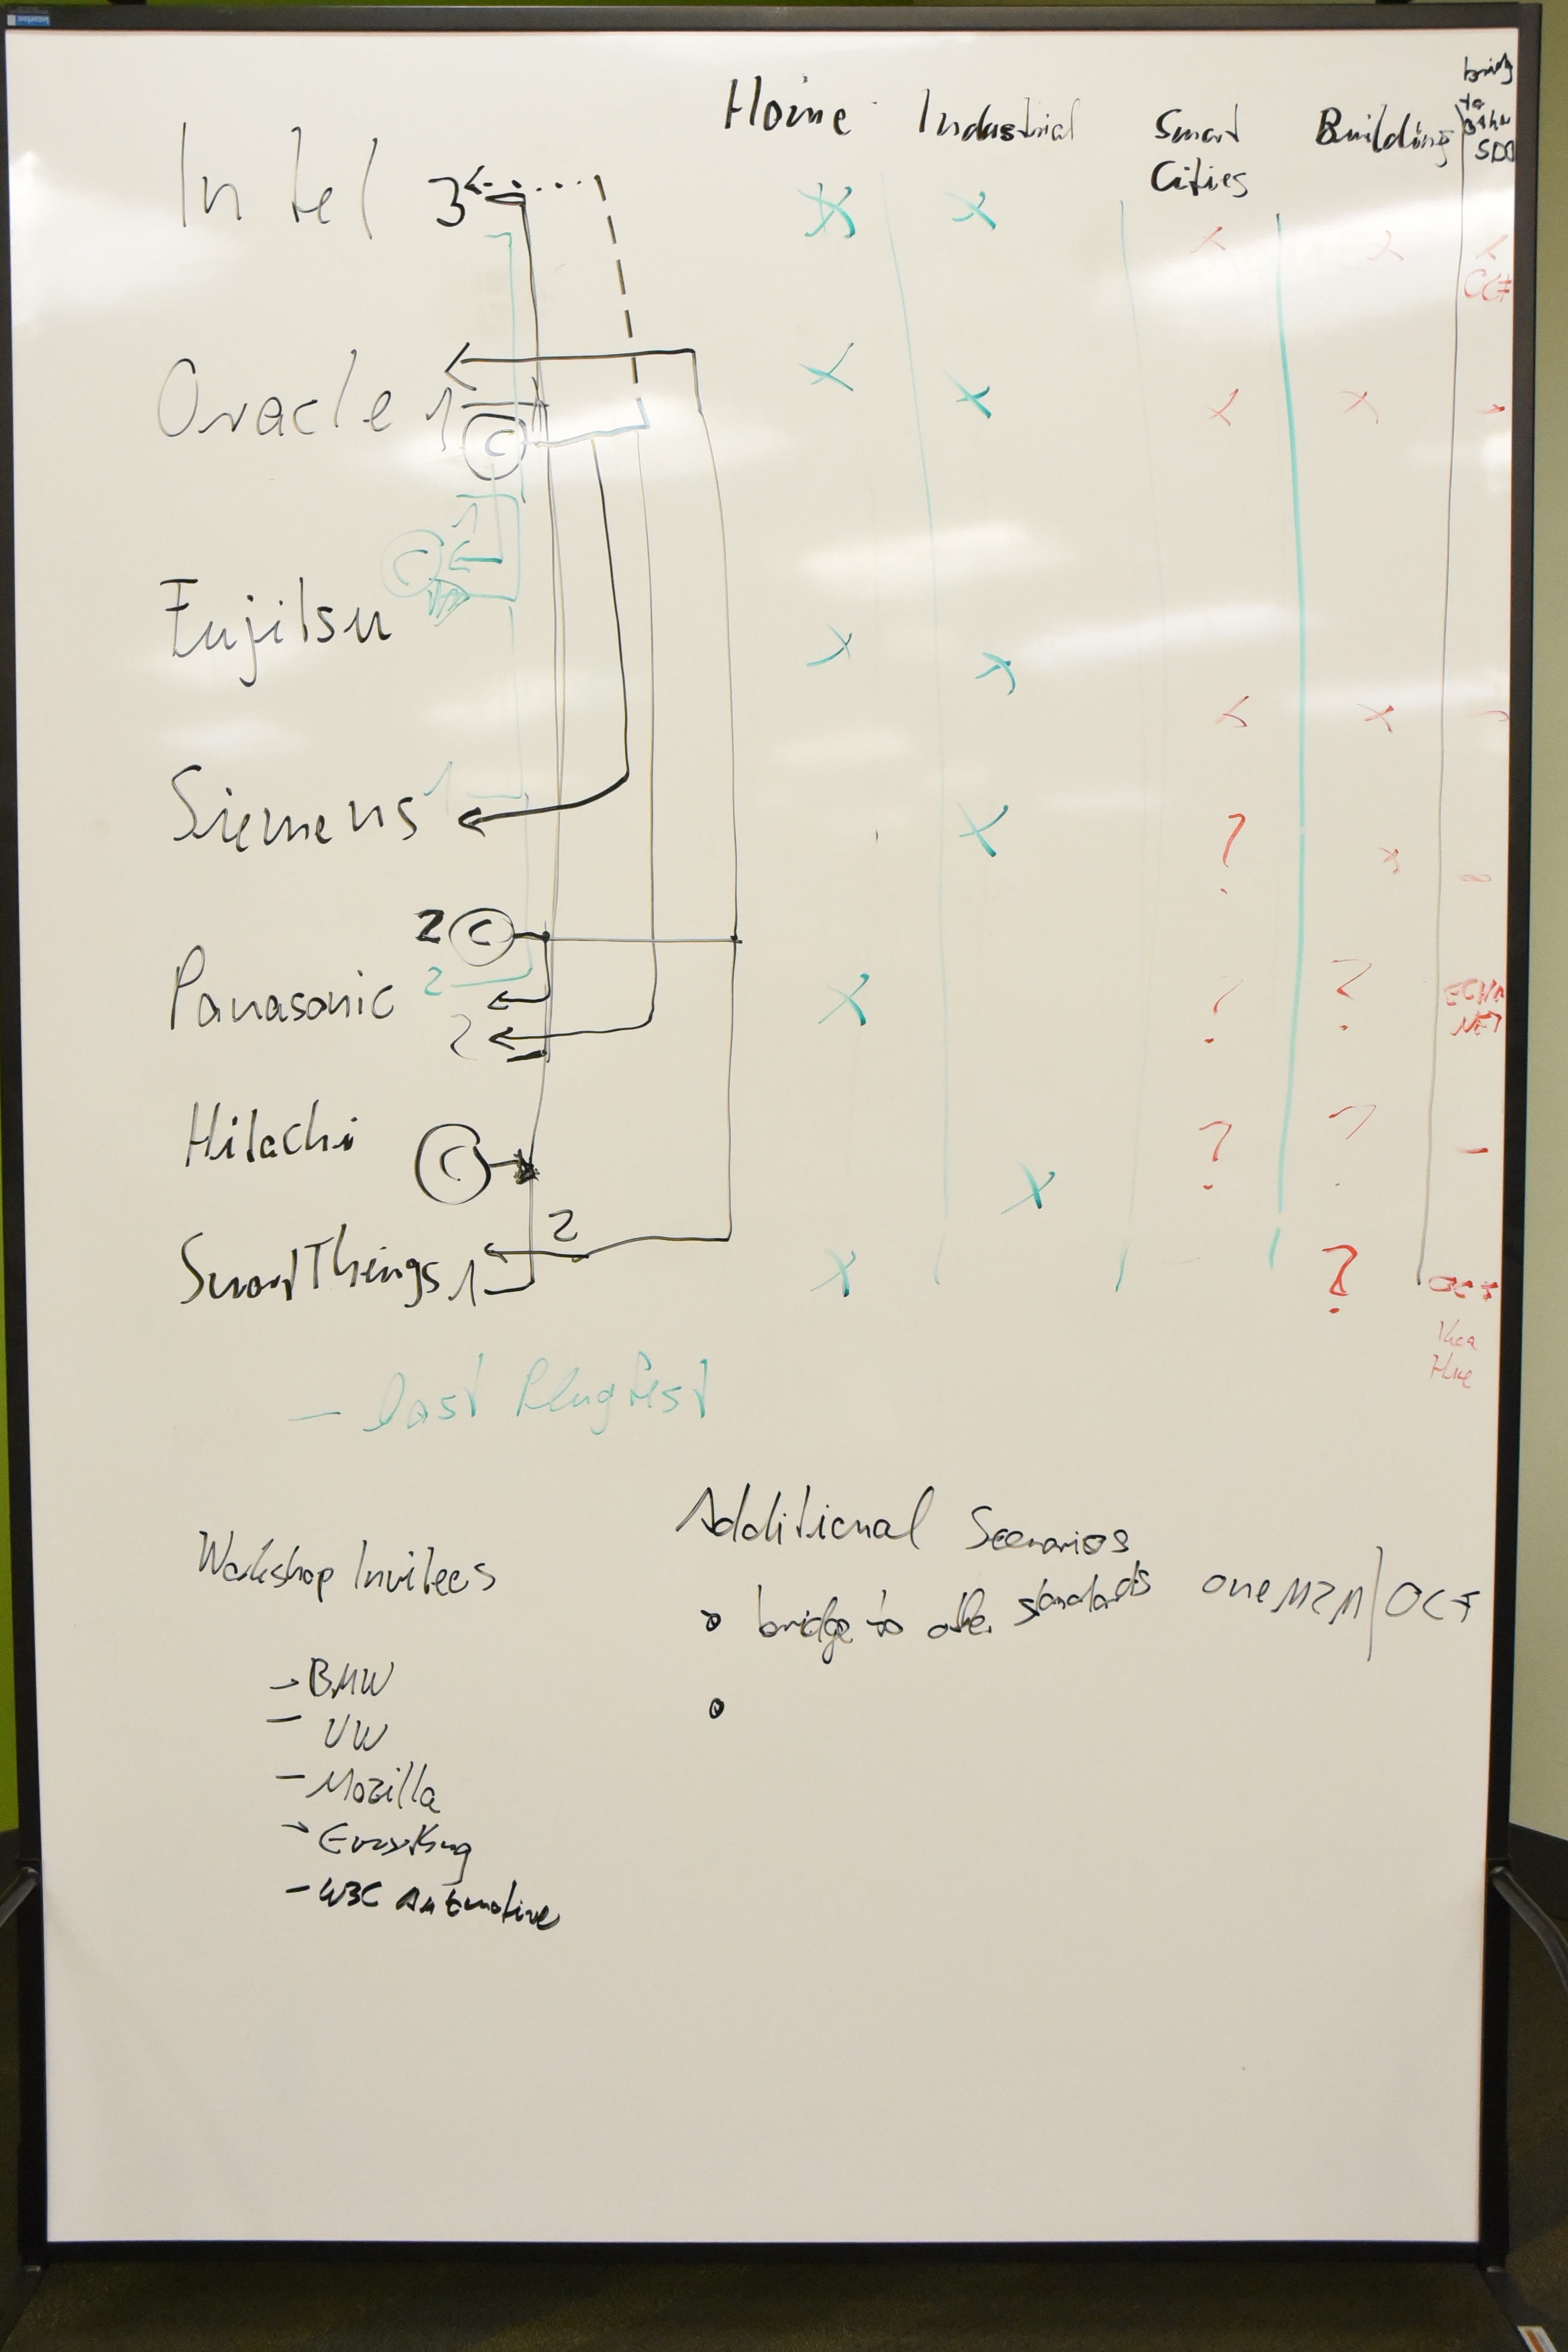 Home Industrial Smart Cities Building bridge to other SDO
Intel 3 X X X X X OCF
Oracle 1 C X X X X -
C 1 2
Fujitsu X X X X -
Siemens 1 X ? X
2 C
Panasonic 2 X ? ? ECHO NET
2
Hitachi C X ? ? -
2
SmartThings 1 X ? OCF
Ikea
Hue
- Last Plugfest
Additional Scenarios
Workshop Invitees
bridge to other standards oneM2M | OCF
- BMW
- VW
- Mozilla
- W3C Automotive